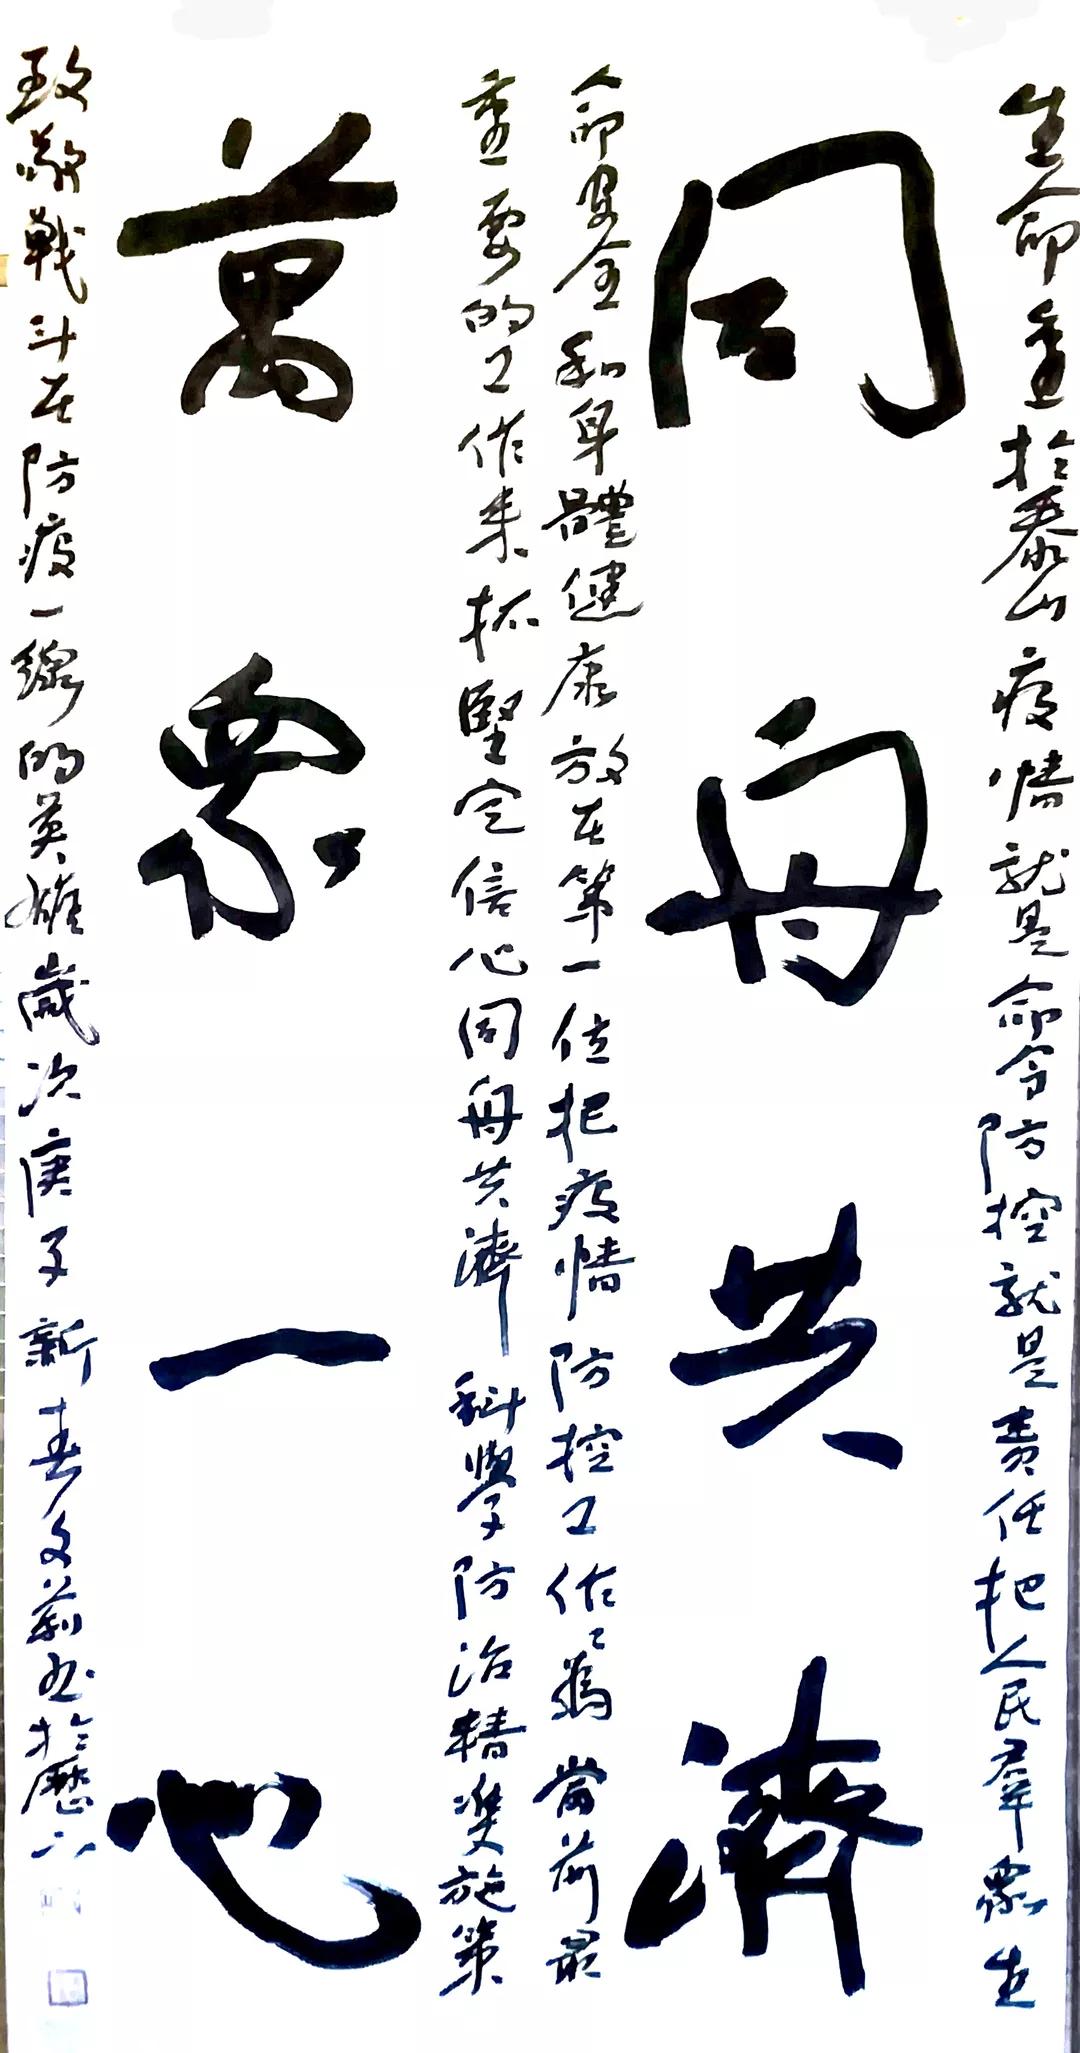 生命重於泰山疫情就是命令防控就是責任把人民羣衆生
同舟共濟
命安全和身體健康放在第一位把疫情防控工作作爲當前最
重要的工作来抓堅定信心同舟共濟科學防治精準施策
萬衆一心
致敬戰斗在防疫一線的英雄歲次庚子新春文莉书於歷下